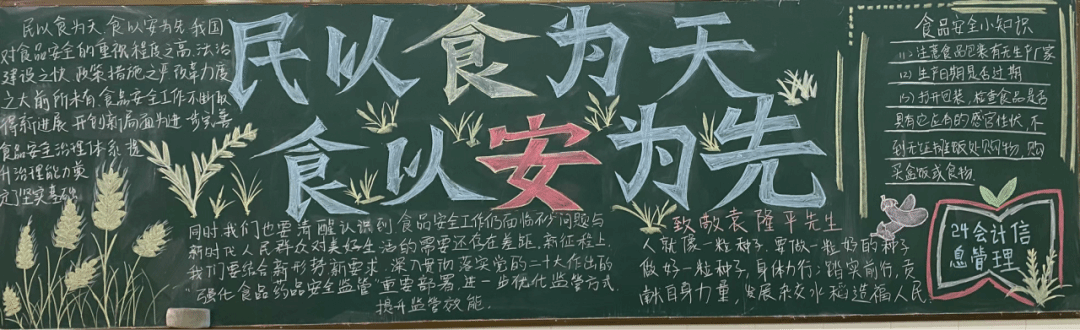 民以食为天
食以安为先
民以食为天,食以安为先,我国
对食品安全的重视程度之高,法治
建设之快,政策措施之严,改革力度
之大前所未有,食品安全工作不断取
得新进展,开创新局面为进一步完善
食品安全治理体系,提
升治理能力奠
定坚实基础
同时我们也要清醒认识到,食品安全工作仍面临不少问题与
新时代人民群众对美好生活的需要还存在差距,新征程上,
我们要结合新形势新要求,深入贯彻落实党的二十大作出的
“强化食品药品安全监管”重要部署,进一步优化监管方式,
提升监管效能.
致敬袁隆平先生
人就像一粒种子,要做一粒好的种子
做好一粒种子,身体力行;踏实前行,贡
献自身力量,发展杂交水稻造福人民
食品安全小知识
(1)注意食品包装有无生产厂家
(2)生产日期是否过期
(3)打开包装,检查食品是否
具有它应有的感官性状,不
到无证摊贩处购物,购
买盒饭或食物.
24会计信
息管理